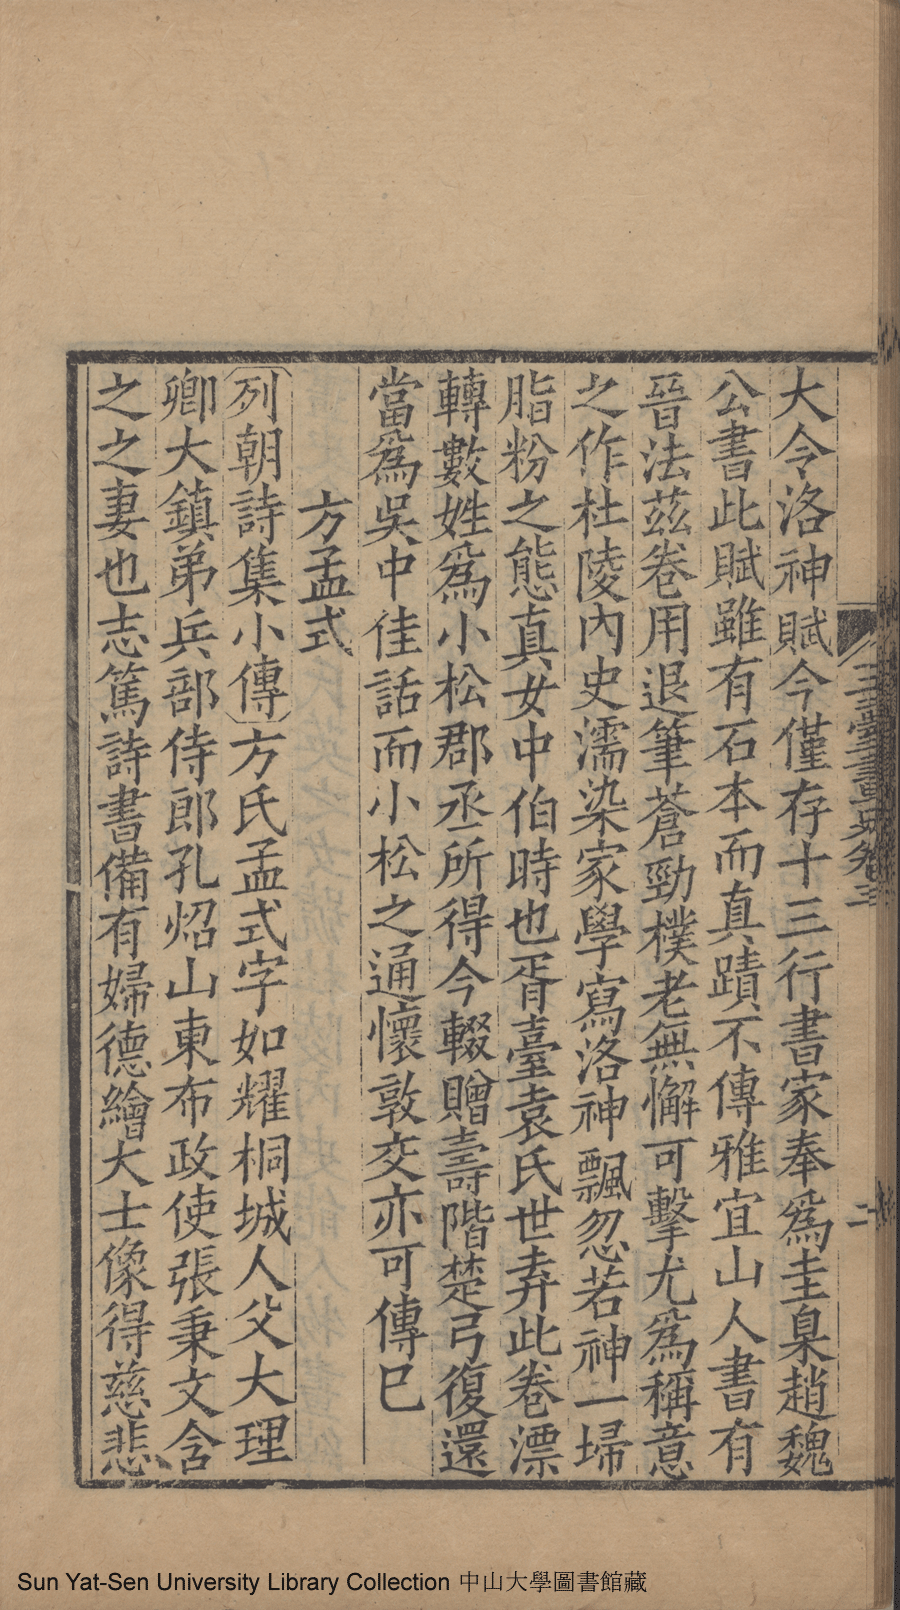 大令洛神賦今僅存十三行書家奉爲圭臬趙魏
公書此賦雖有石本而真蹟不傳雅宜山人書有
晉法茲卷用退筆蒼勁樸老無懈可擊尤爲稱意
之作杜陵內史濡染家學寫洛神飄忽若神一埽
脂粉之態真女中伯時也胥臺袁氏世弆此卷漂
轉數姓爲小松郡丞所得今輟贈壽階楚弓復還
當爲吳中佳話而小松之通懷敦交亦可傳已
方孟式
列朝詩集小傳方氏孟式字如耀桐城人父大理
卿大鎮弟兵部侍郎孔炤山東布政使張秉文含
之之妻也志篤詩書備有婦德繪大士像得慈悲
玉臺畫史卷三
二
Sun Yat-Sen University Library Collection 中山大學圖書館藏